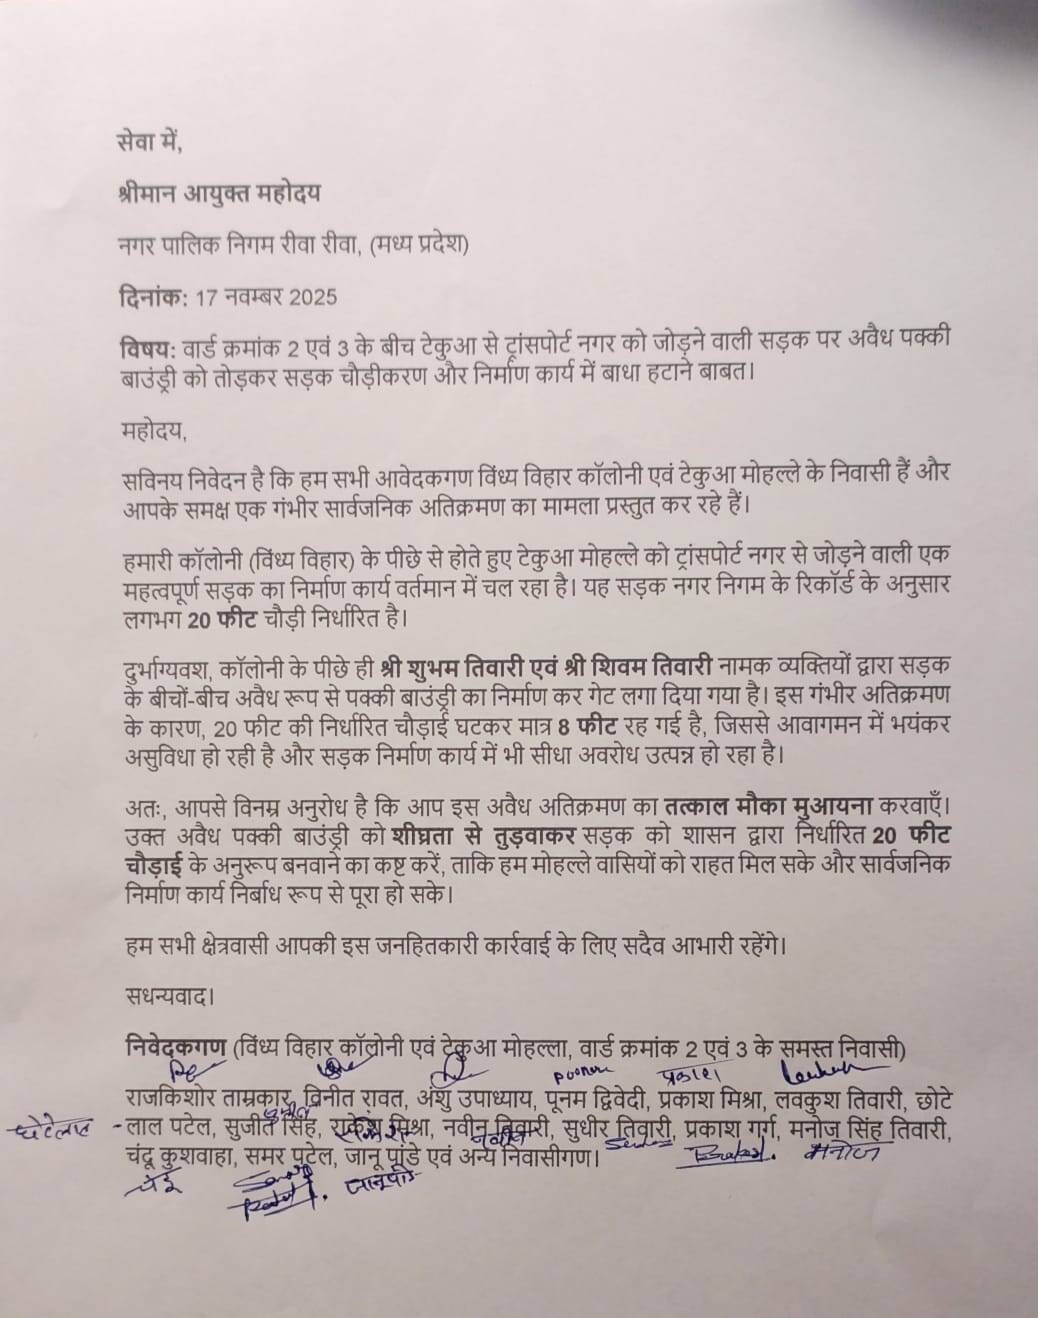 सेवा में,
श्रीमान आयुक्त महोदय
नगर पालिक निगम रीवा रीवा, (मध्य प्रदेश)
दिनांक: 17 नवम्बर 2025
विषय: वार्ड क्रमांक 2 एवं 3 के बीच टेकुआ से ट्रांसपोर्ट नगर को जोड़ने वाली सड़क पर अवैध पक्की
बाउंड्री को तोड़कर सड़क चौड़ीकरण और निर्माण कार्य में बाधा हटाने बाबत।
महोदय,
सविनय निवेदन है कि हम सभी आवेदकगण विंध्य विहार कॉलोनी एवं टेकुआ मोहल्ले के निवासी हैं और
आपके समक्ष एक गंभीर सार्वजनिक अतिक्रमण का मामला प्रस्तुत कर रहे हैं।
हमारी कॉलोनी (विंध्य विहार) के पीछे से होते हुए टेकुआ मोहल्ले को ट्रांसपोर्ट नगर से जोड़ने वाली एक
महत्वपूर्ण सड़क का निर्माण कार्य वर्तमान में चल रहा है। यह सड़क नगर निगम के रिकॉर्ड के अनुसार
लगभग 20 फीट चौड़ी निर्धारित है।
दुर्भाग्यवश, कॉलोनी के पीछे ही श्री शुभम तिवारी एवं श्री शिवम तिवारी नामक व्यक्तियों द्वारा सड़क
के बीचों-बीच अवैध रूप से पक्की बाउंड्री का निर्माण कर गेट लगा दिया गया है। इस गंभीर अतिक्रमण
के कारण, 20 फीट की निर्धारित चौड़ाई घटकर मात्र 8 फीट रह गई है, जिससे आवागमन में भयंकर
असुविधा हो रही है और सड़क निर्माण कार्य में भी सीधा अवरोध उत्पन्न हो रहा है।
अतः, आपसे विनम्र अनुरोध है कि आप इस अवैध अतिक्रमण का तत्काल मौका मुआयना करवाएँ।
उक्त अवैध पक्की बाउंड्री को शीघ्रता से तुड़वाकर सड़क को शासन द्वारा निर्धारित 20 फीट
चौड़ाई के अनुरूप बनवाने का कष्ट करें, ताकि हम मोहल्ले वासियों को राहत मिल सके और सार्वजनिक
निर्माण कार्य निर्बाध रूप से पूरा हो सके।
हम सभी क्षेत्रवासी आपकी इस जनहितकारी कार्रवाई के लिए सदैव आभारी रहेंगे।
सधन्यवाद।
निवेदकगण (विंध्य विहार कॉलोनी एवं टेकुआ मोहल्ला, वार्ड क्रमांक 2 एवं 3 के समस्त निवासी)
poonam प्रकाश
राजकिशोर ताम्रकार, विनीत रावत, अंशु उपाध्याय, पूनम द्विवेदी, प्रकाश मिश्रा, लवकुश तिवारी, छोटे
लाल पटेल, सुजीत सिंह, राकेश मिश्रा, नवीन तिवारी, सुधीर तिवारी, प्रकाश गर्ग, मनोज सिंह तिवारी,
चंदू कुशवाहा, समर पटेल, जानू पांडे एवं अन्य निवासीगण।
मनोज